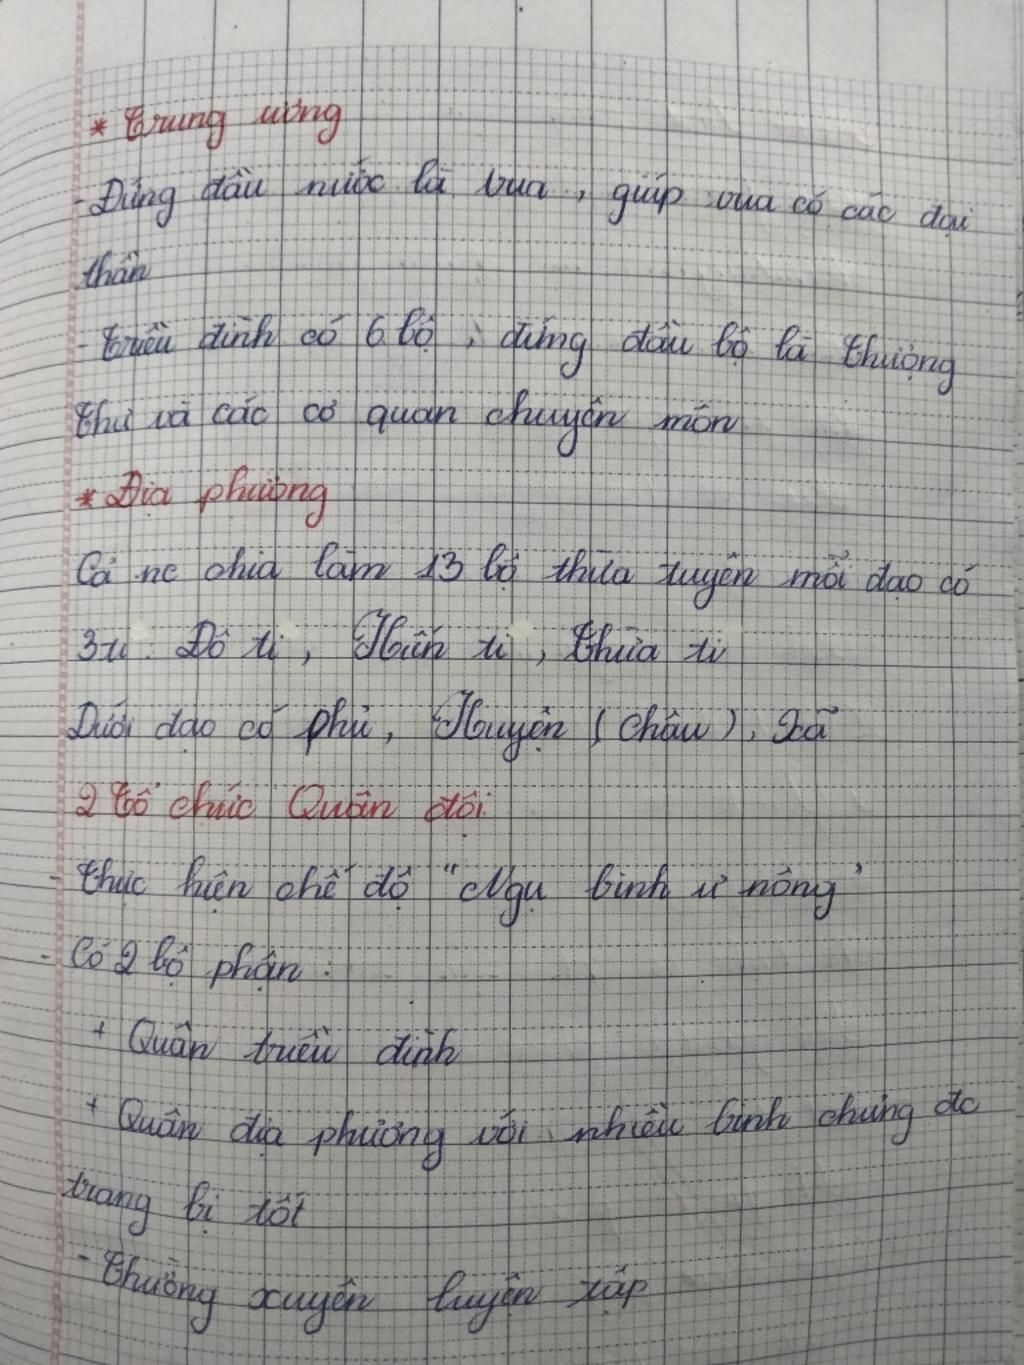 * Trung ương
- Đứng đầu nước là vua, giúp vua có các đại
thần
- Triều đình có 6 bộ, đứng đầu bộ là thượng
thư và các cơ quan chuyên môn
* Địa phương
Cả nc chia làm 13 bộ thừa tuyên mỗi đạo có
3 ti: Đô ti, Hiến ti, Thừa ti
Dưới đạo có phủ, Huyện (Châu), Xã
2 Tổ chức Quân đội
- Thực hiện chế độ "Ngụ binh ư nông"
- Có 2 bộ phận:
+ Quân triều đình
+ Quân địa phương với nhiều binh chủng đc
trang bị tốt
- Thường xuyên luyện tập